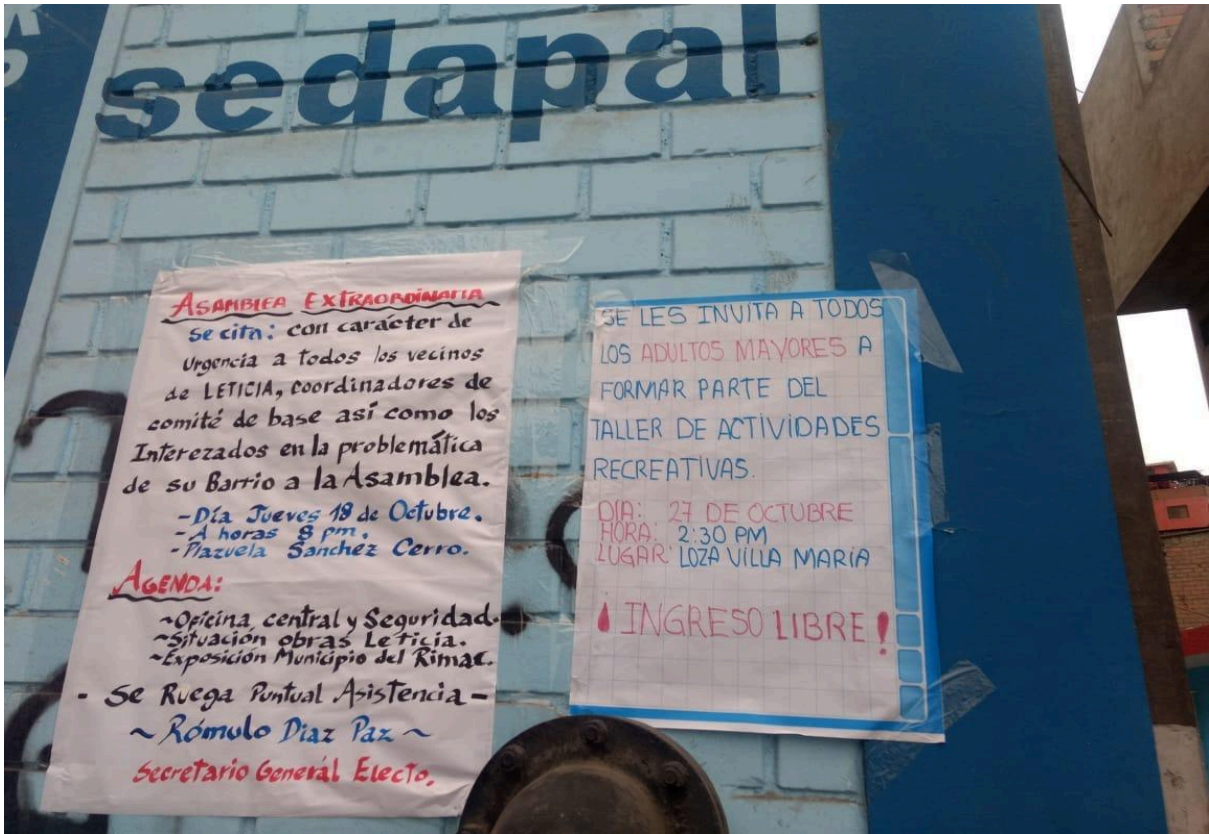 sedapal
ASAMBLEA EXTRAORDINARIA
se cita: con carácter de
Urgencia a todos los vecinos
de LETICIA, coordinadores de
comité de base así como los
Interezados en la problemática
de su Barrio a la Asamblea.
-Día Jueves 18 de Octubre.
-A horas 8 pm.
-Plazuela Sanchez Cerro.
AGENDA:
~Oficina central y Seguridad.
~Situación obras Leticia.
~Exposición Municipio del Rimac.
- Se Ruega Puntual Asistencia -
~ Rómulo Diaz Paz ~
Secretario Generál Electo,
SE LES INVITA A TODOS
LOS ADULTOS MAYORES A
FORMAR PARTE DEL
TALLER DE ACTIVIDADES
RECREATIVAS.
DIA: 27 DE OCTUBRE
HORA: 2:30 PM
LUGAR: LOZA VILLA MARÍA
¡INGRESO LIBRE!